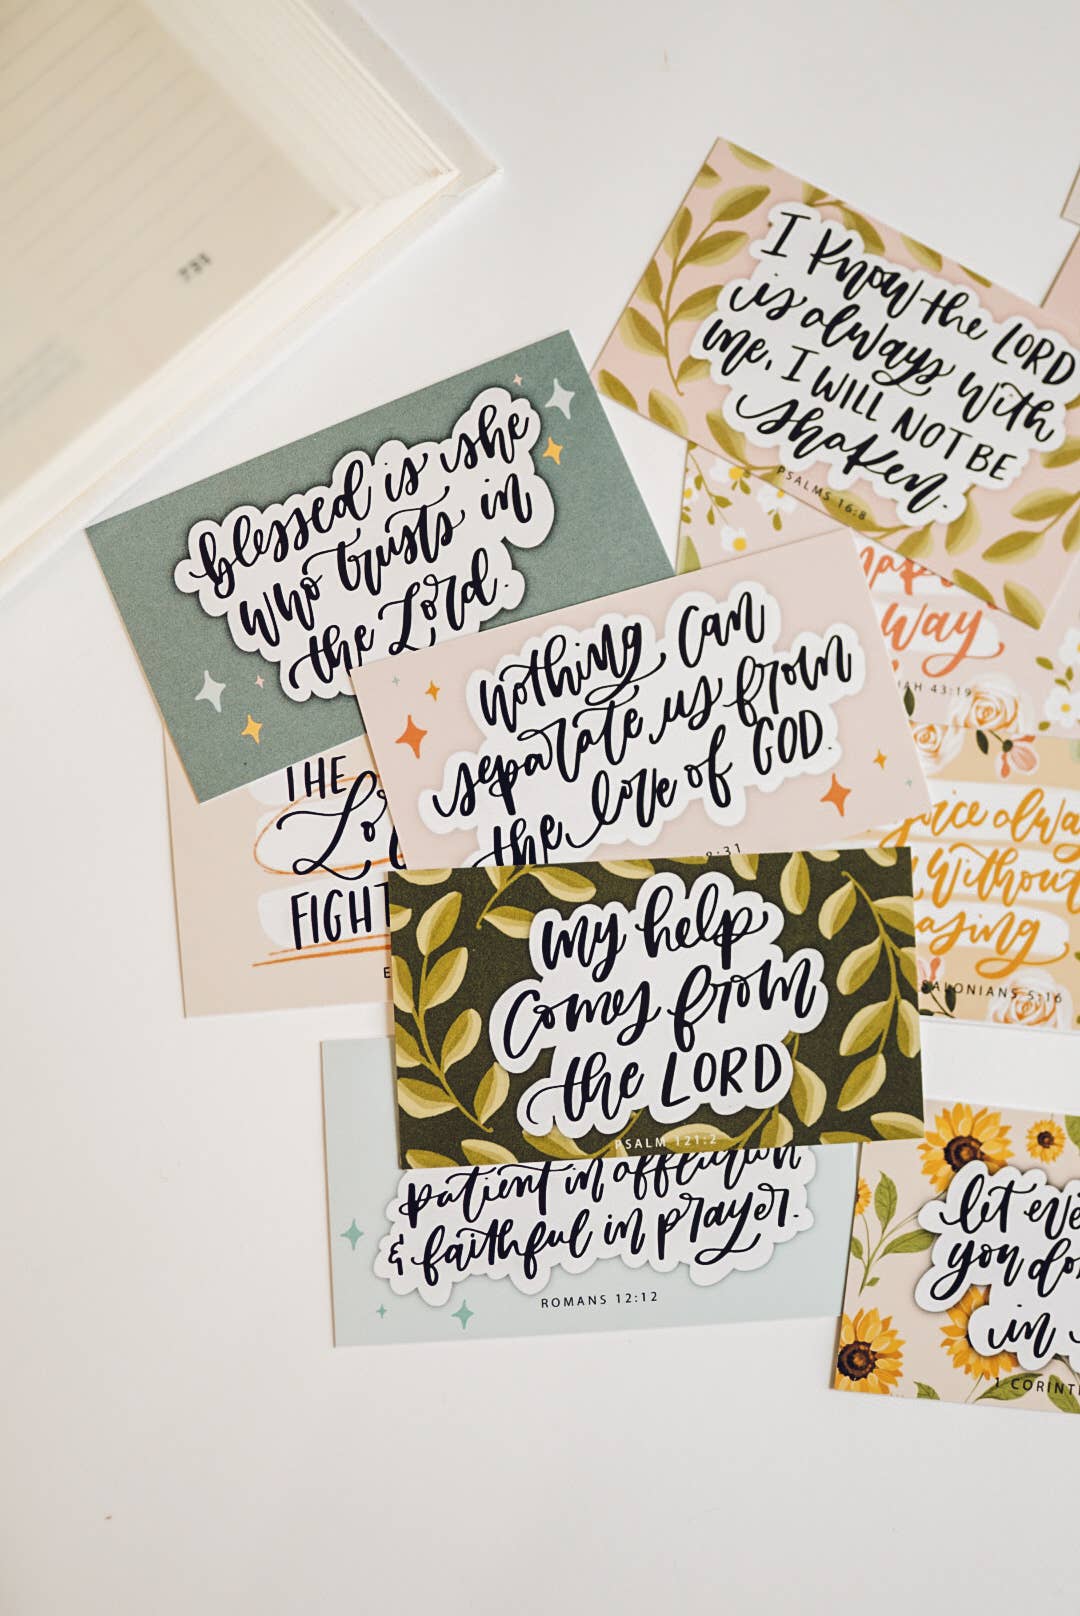 731
I KNOW the LORD
is always with
me, I WILL NOT BE
shaken.
PSALMS 16:8
blessed is she
who trusts in
the Lord.
way
43:19
nothing can
separate us from
the love of GOD.
8:31
THE
FIGHT
without
5:16
my help
comes from
the LORD
PSALM 121:2
patient in affliction
& faithful in prayer.
ROMANS 12:12
let
you
in
1